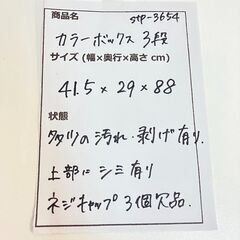 商品名 stp-3654
カラーボックス 3段
サイズ (幅×奥行×高さ cm)
41.5 × 29 × 88
状態
多少の汚れ・剥げ有り.
上部に シミ有り
ネジキャップ 3個欠品.